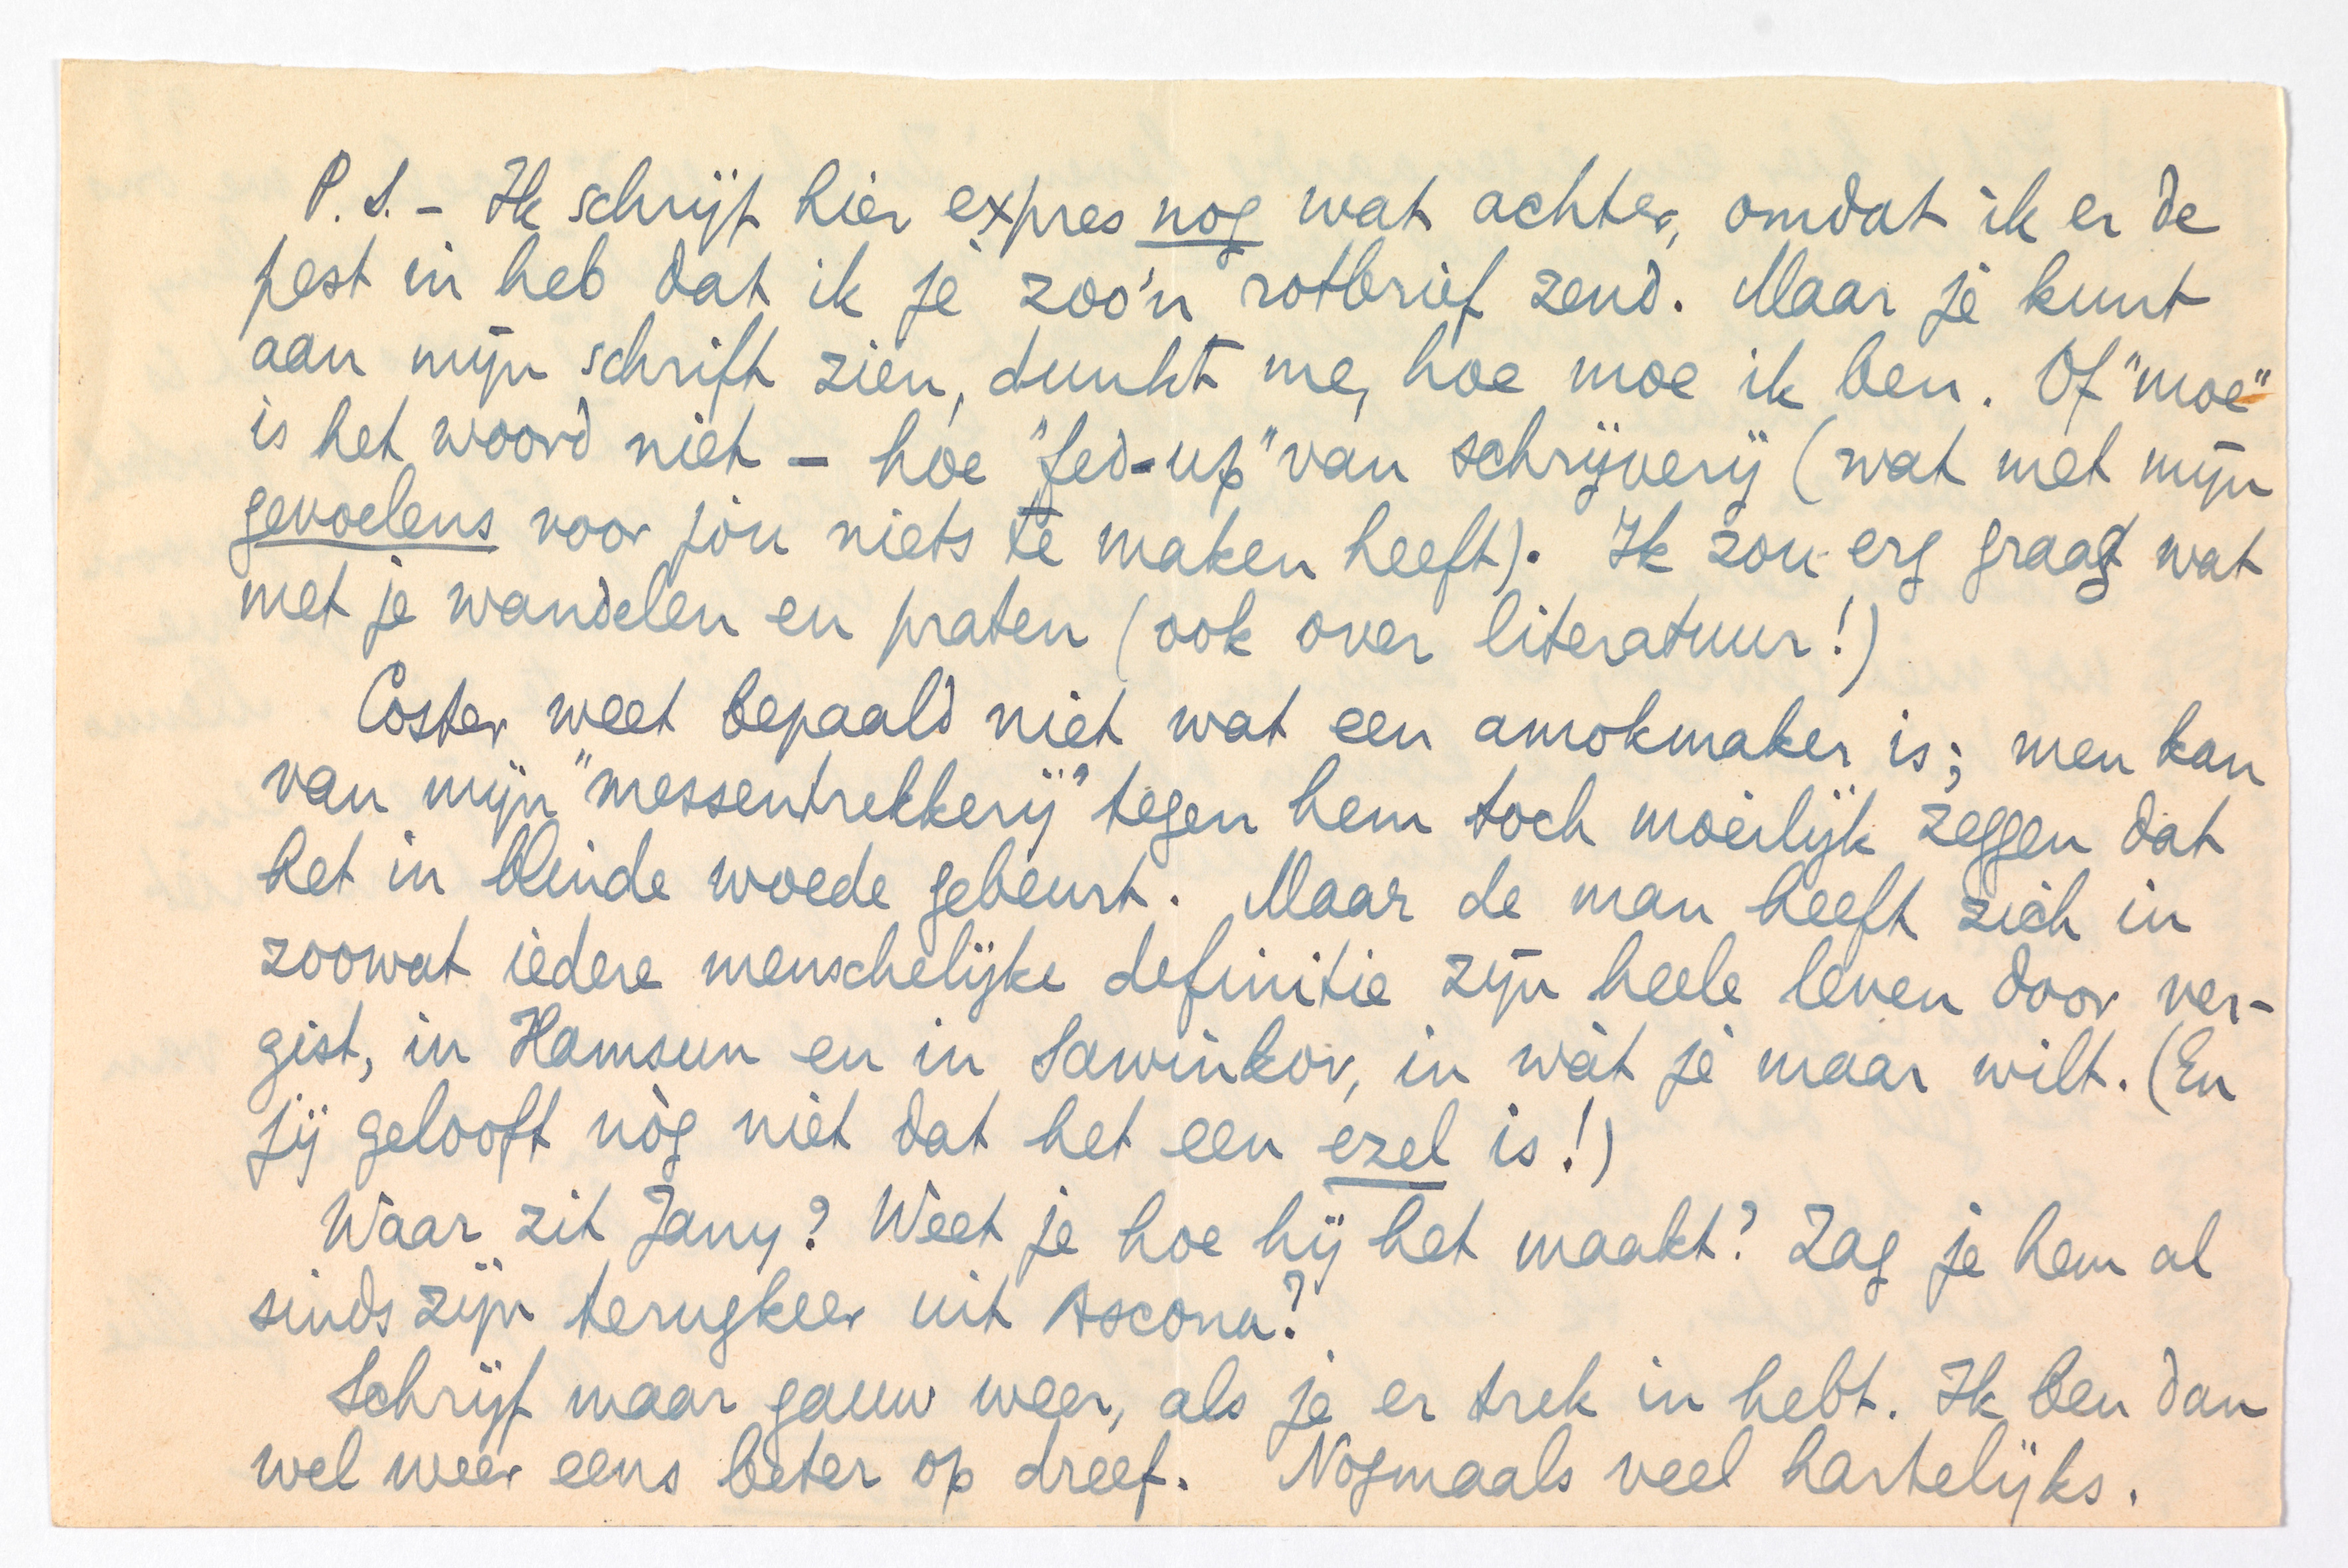 P.S. – Ik schrijf hier expres nog wat achter, omdat ik er de
pest in heb dat ik je zoo'n rotbrief zend. Maar je kunt
aan mijn schrift zien, dunkt me, hoe moe ik ben. Of "moe"
is het woord niet – hoe "fed-up" van schrijverij (wat met mijn
gevoelens voor jou niets te maken heeft). Ik zou erg graag wat
met je wandelen en praten (ook over literatuur!)
Coster weet bepaald niet wat een amokmaker is; men kan
van mijn "messentrekkerij" tegen hem toch moeilijk zeggen dat
het in blinde woede gebeurt. Maar de man heeft zich in
zoowat iedere menschelijke definitie zijn heele leven door ver-
gist, in Hamsun en in Sawinkov, in wàt je maar wilt. (En
jij gelooft nòg niet dat het een ezel is!)
Waar zit Jany? Weet je hoe hij het maakt? Zag je hem al
sinds zijn terugkeer uit Ascona?
Schrijf maar gauw weer, als je er trek in hebt. Ik ben dan
wel weer eens beter op dreef. Nogmaals veel hartelijks.